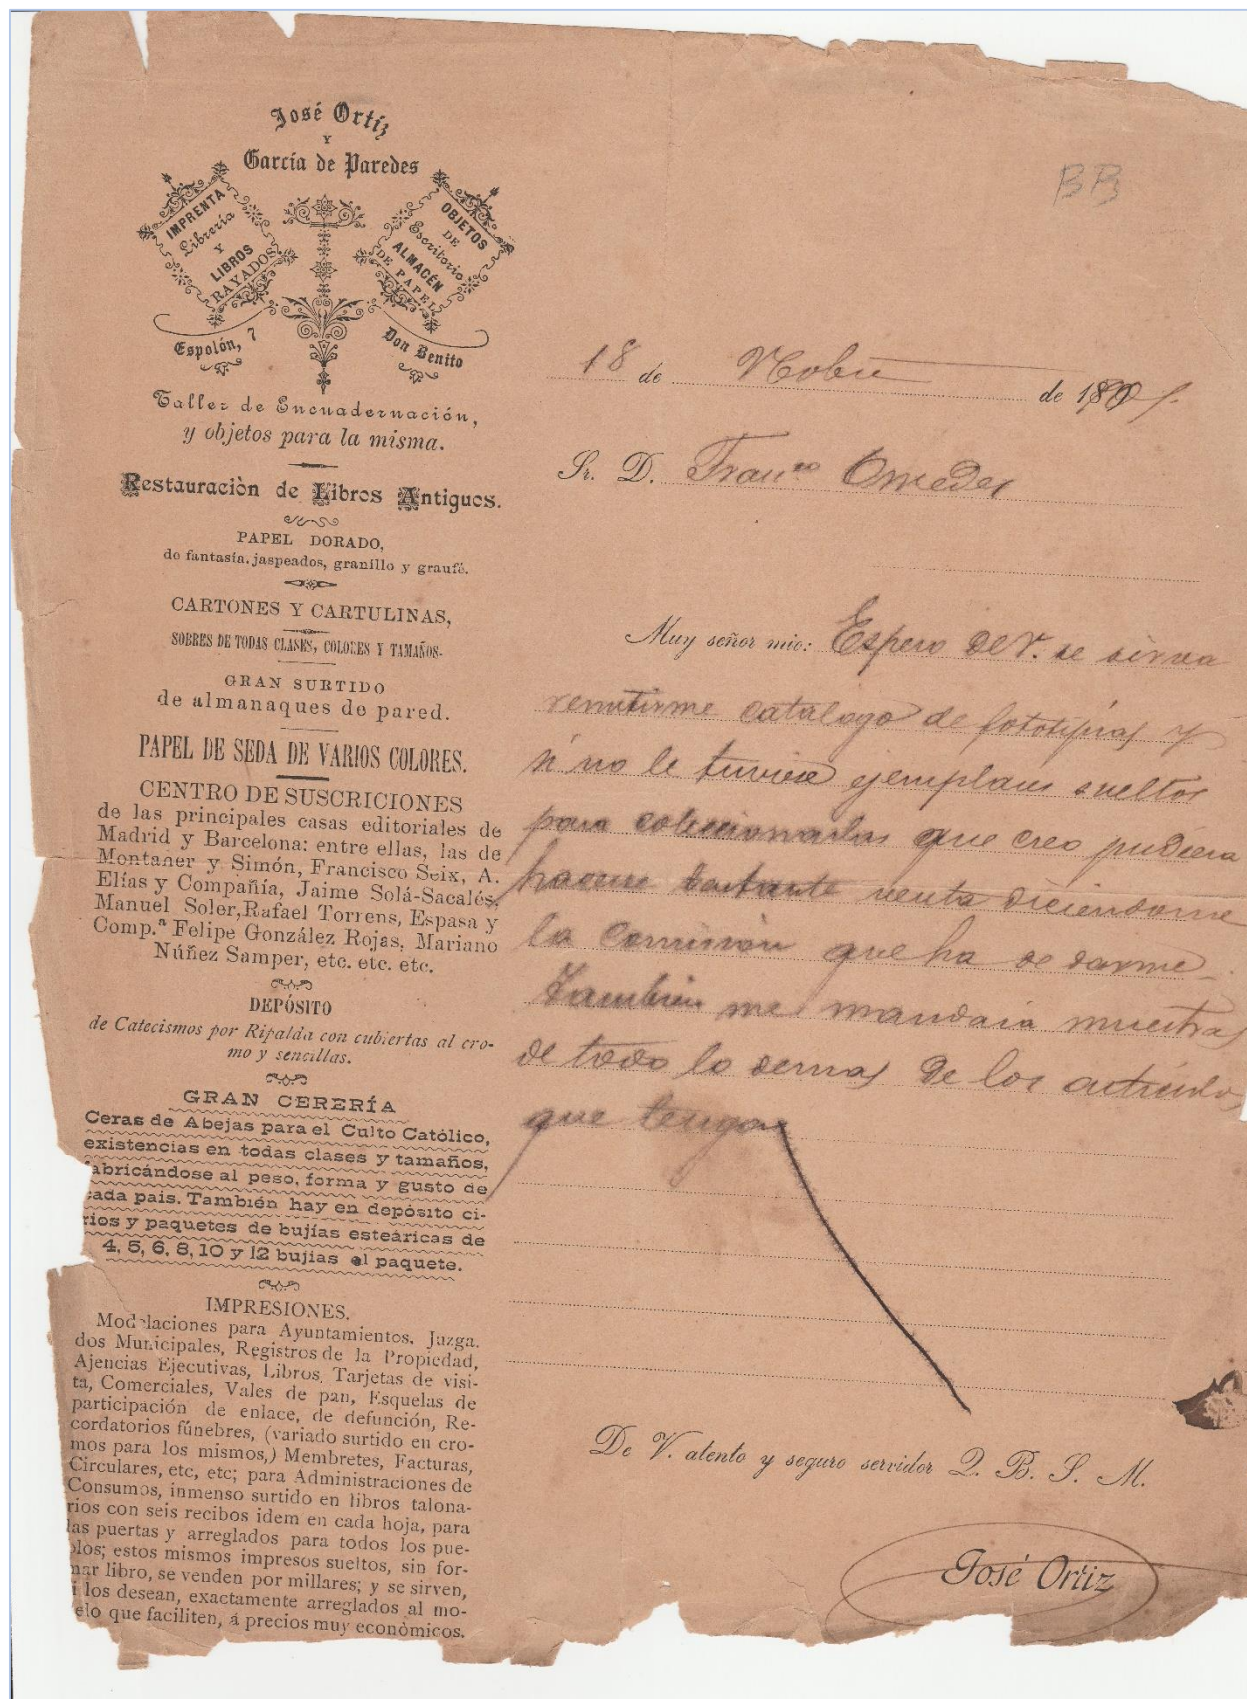 José Ortíz
Y
García de Paredes
IMPRENTA
Librería
Y
LIBROS
RAYADOS
OBJETOS
DE
Escritorio
ALMACÉN
DE PAPEL
Espolón, 7
Don Benito
Taller de Encuadernación,
y objetos para la misma.
Restauraciòn de Libros Antiguos.
PAPEL DORADO,
de fantasía, jaspeados, granillo y graufé.
CARTONES Y CARTULINAS,
SOBRES DE TODAS CLASES, COLORES Y TAMAÑOS.
GRAN SURTIDO
de almanaques de pared.
PAPEL DE SEDA DE VARIOS COLORES.
CENTRO DE SUSCRICIONES
de las principales casas editoriales de
Madrid y Barcelona: entre ellas, las de
Montaner y Simón, Francisco Seix, A.
Elías y Compañía, Jaime Solá-Sacalés,
Manuel Soler, Rafael Torrens, Espasa y
Comp.ª Felipe González Rojas, Mariano
Núñez Samper, etc. etc. etc.
DEPÓSITO
de Catecismos por Ripalda con cubiertas al cro-
mo y sencillas.
GRAN CERERÍA
Ceras de Abejas para el Culto Católico,
existencias en todas clases y tamaños,
fabricándose al peso, forma y gusto de
cada pais. También hay en depósito ci-
rios y paquetes de bujías esteáricas de
4, 5, 6, 8, 10 y 12 bujias el paquete.
IMPRESIONES.
Modelaciones para Ayuntamientos, Juzga.
dos Municipales, Registros de la Propiedad,
Ajencias Ejecutivas, Libros, Tarjetas de visi-
ta, Comerciales, Vales de pan, Esquelas de
participación de enlace, de defunción, Re-
cordatorios fúnebres, (variado surtido en cro-
mos para los mismos,) Membretes, Facturas,
Circulares, etc, etc; para Administraciones de
Consumos, inmenso surtido en libros talona-
rios con seis recibos idem en cada hoja, para
las puertas y arreglados para todos los pue-
blos; estos mismos impresos sueltos, sin for-
mar libro, se venden por millares; y se sirven,
i los desean, exactamente arreglados al mo-
elo que faciliten, á precios muy económicos.
BB
18 de Nobre de 190
Sr. D. Franco Omedes
Muy señor mio: Espero de V. se sirva
remitirme catalogo de fototipias y
si no le tuviese ejemplares sueltos
para coleccionarlas que creo pudiera
hacerse bastante venta diciendome
la comision que ha de darme
Tambien me mandara muestras
de todo lo demas de los articulos
que tenga
De V. atento y seguro servidor Q. B. S. M.
José Ortiz